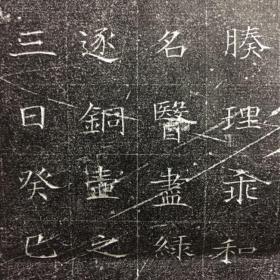 腠理乖和
名醫盡綠
逐銅壺之
三日癸巳